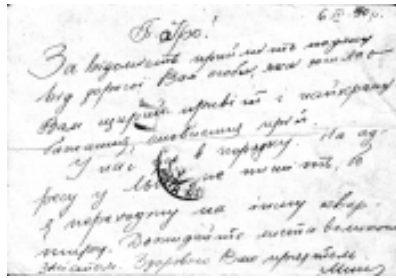 6. II. 40 р.
Батю!
За відомість прийміть подяку
від дорогої Вам особи, яка засилає
Вам щирий привіт і найкращі
бажання,
У нас все в порядку. На ад-
ресу у Львові не пишіть, бо
я переходжу на іншу квар-
тиру. Дожидайте листа
Здоровлю Вас приятель